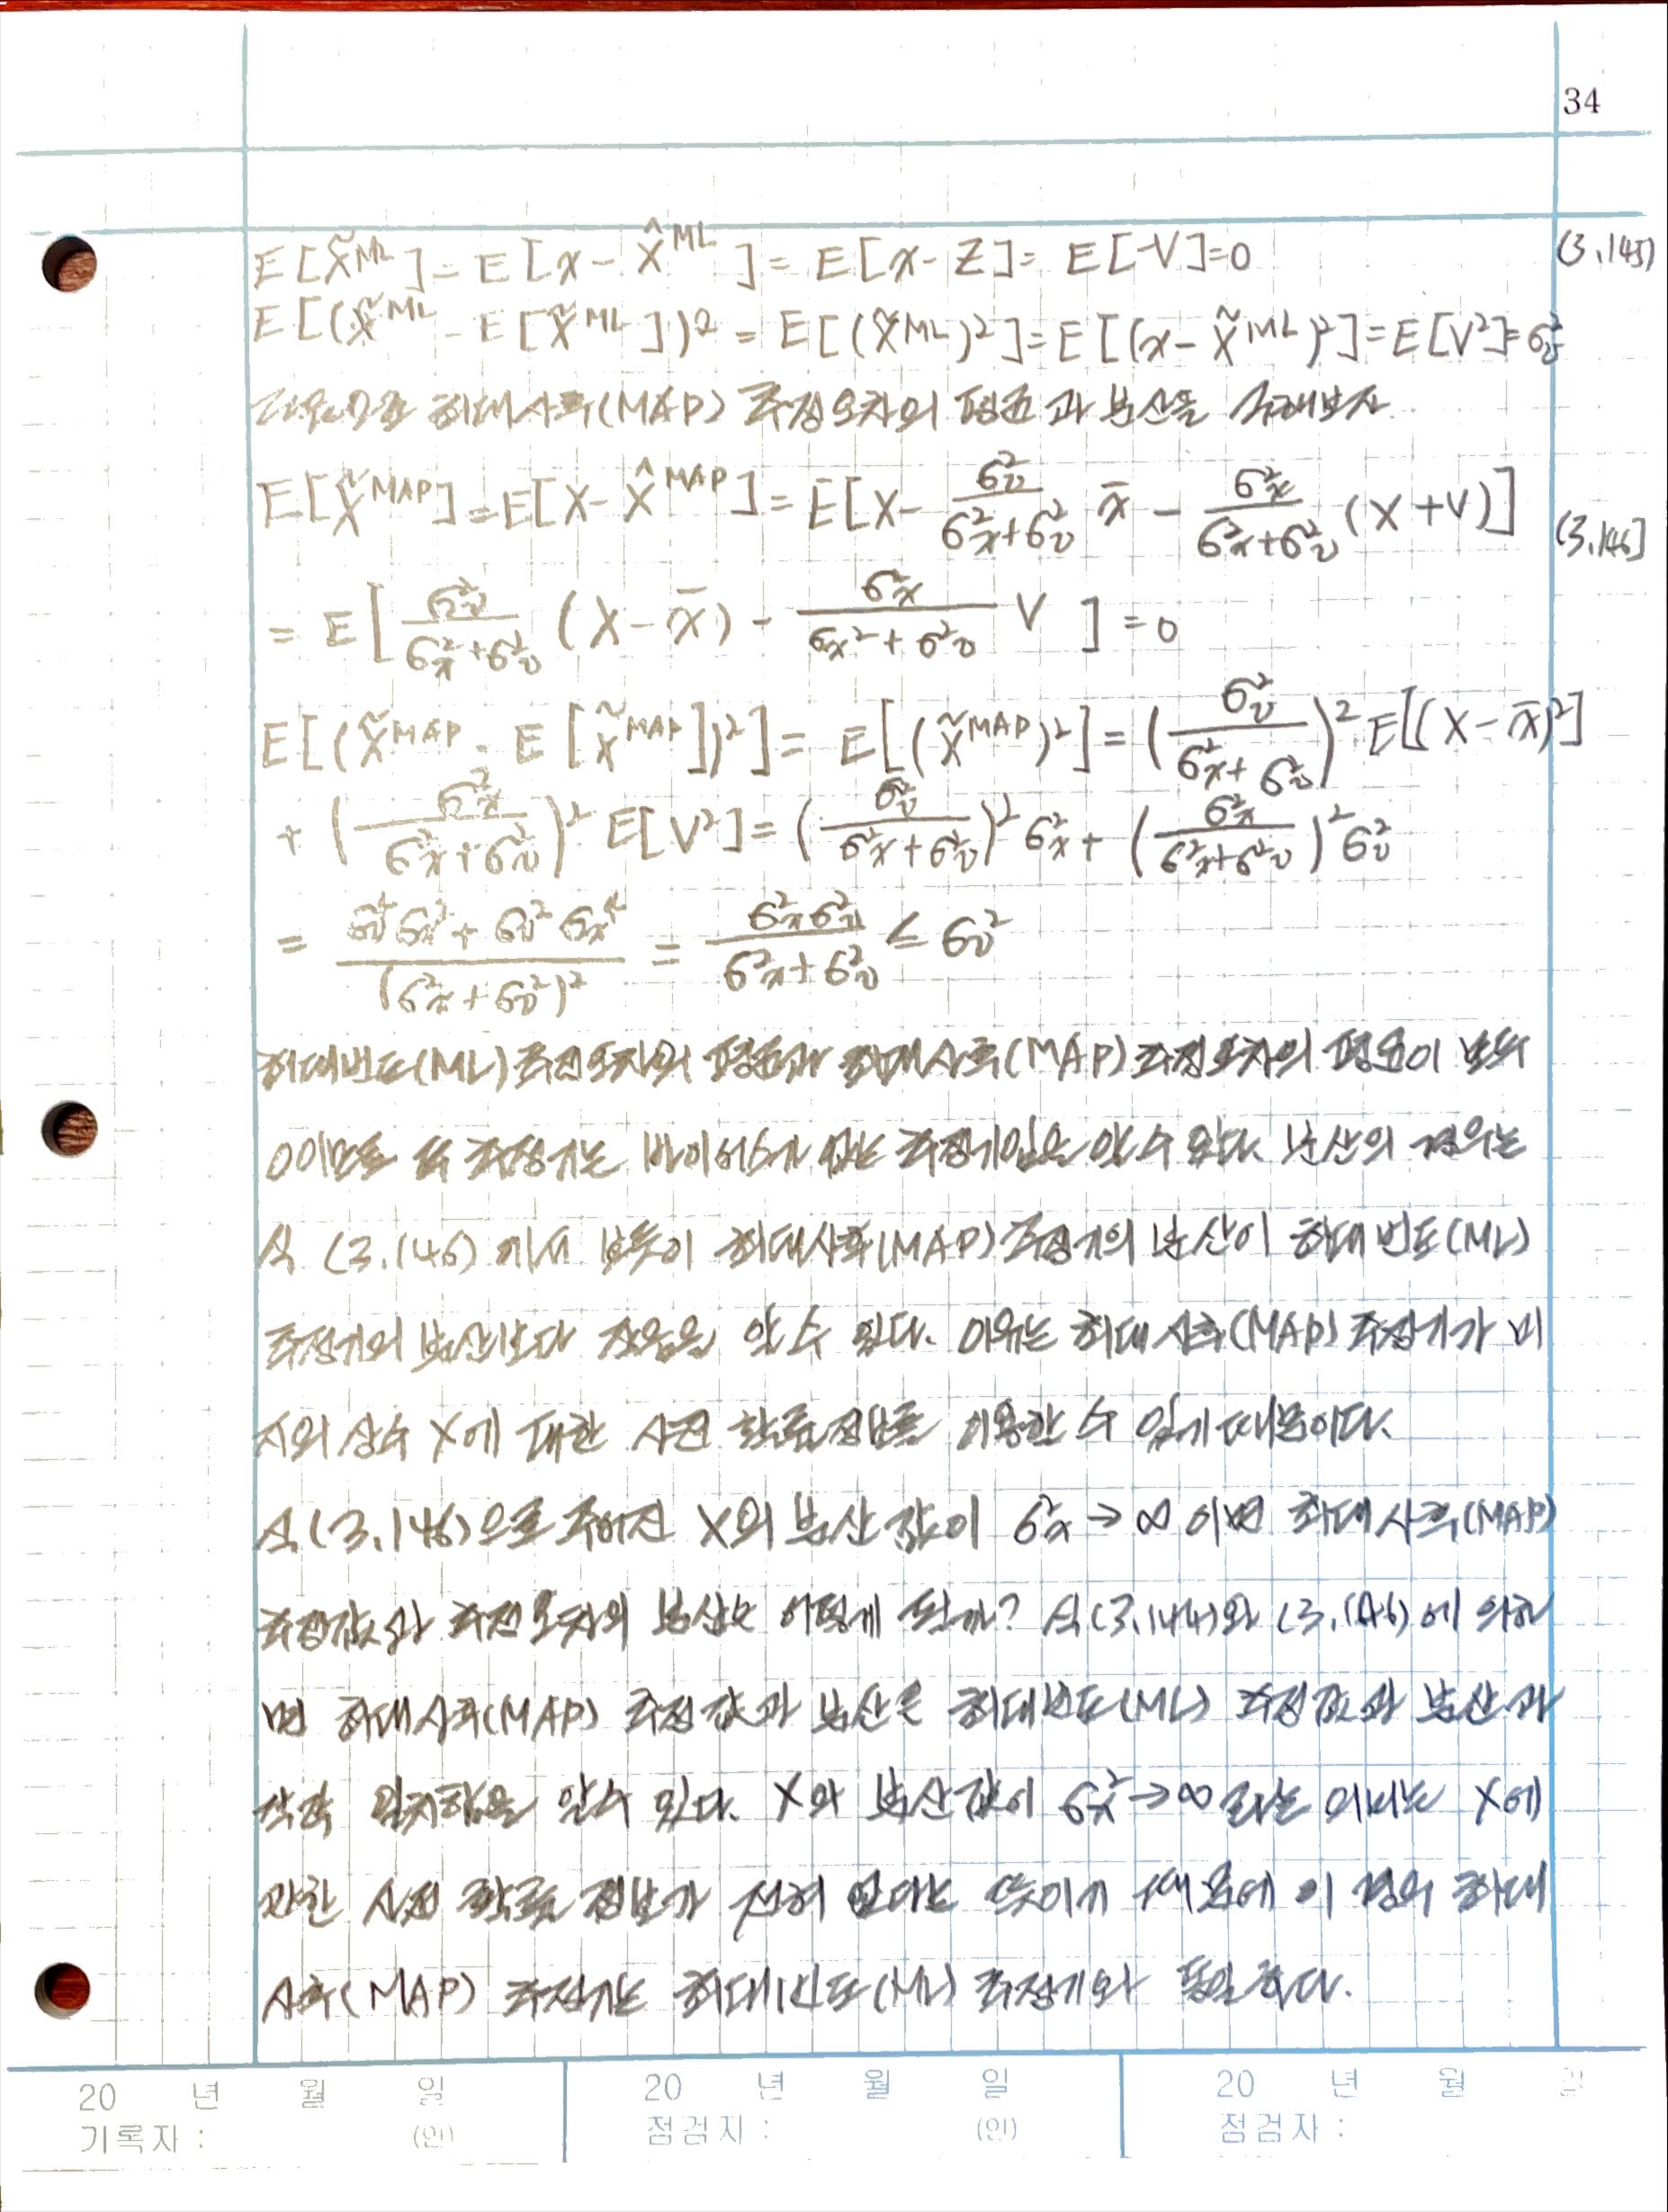 34
E[X̃^ML] = E[x - X̂^ML] = E[x - Z] = E[-V] = 0 (3.145)
E[(X̃^ML - E[X̃^ML])² = E[(X̃^ML)²] = E[(x - X̃^ML)²] = E[V²] = σ²_v
다음으로 최대사후(MAP) 추정오차의 평균과 분산을 구해보자
E[X̃^MAP] = E[X - X̂^MAP] = E[X - σ²_v/(σ²_x+σ²_v) x̄ - σ²_x/(σ²_x+σ²_v) (X+V)] (3.146]
= E[σ²_v/(σ²_x+σ²_v) (X - x̄) - σ²_x/(σ_x²+σ²_v) V] = 0
E[(X̃^MAP - E[X̃^MAP])²] = E[(X̃^MAP)²] = (σ²_v/(σ²_x+σ²_v))² E[(X - x̄)²]
+ (σ²_x/(σ²_x+σ²_v))² E[V²] = (σ²_v/(σ²_x+σ²_v))² σ²_x + (σ²_x/(σ²_x+σ²_v))² σ²_v
= (σ⁴_v σ²_x + σ_v² σ_x⁴)/(σ²_x+σ_v²)² = σ²_x σ²_v/(σ²_x+σ²_v) ≤ σ_v²
최대빈도(ML) 추정오차의 평균과 최대사후(MAP) 추정오차의 평균이 모두
0이므로 두 추정기는 바이어스가 없는 추정기임을 알 수 있다. 분산의 경우는
식 (3.146)에서 보듯이 최대사후(MAP) 추정기의 분산이 최대빈도(ML)
추정기의 분산보다 작음을 알 수 있다. 이유는 최대사후(MAP) 추정기가 미
지의 상수 X에 대한 사전 확률정보를 이용할 수 있기 때문이다.
식 (3.146)으로 주어진 X의 분산 값이 σ²_x → ∞ 이면 최대사후(MAP)
추정값과 추정오차의 분산은 어떻게 될까? 식 (3.144)와 (3.146)에 의하
면 최대사후(MAP) 추정값과 분산은 최대빈도(ML) 추정값과 분산과
각각 일치함을 알 수 있다. X의 분산값이 σ²_x → ∞ 라는 의미는 X에
관한 사전 확률 정보가 전혀 없다는 뜻이기 때문에 이 경우 최대
사후(MAP) 추정기는 최대빈도(ML) 추정기와 동일하다.
20 년 월 일 20 년 월 일 20 년 월
기록자 : (인) 점검자 : (인) 점검자 :